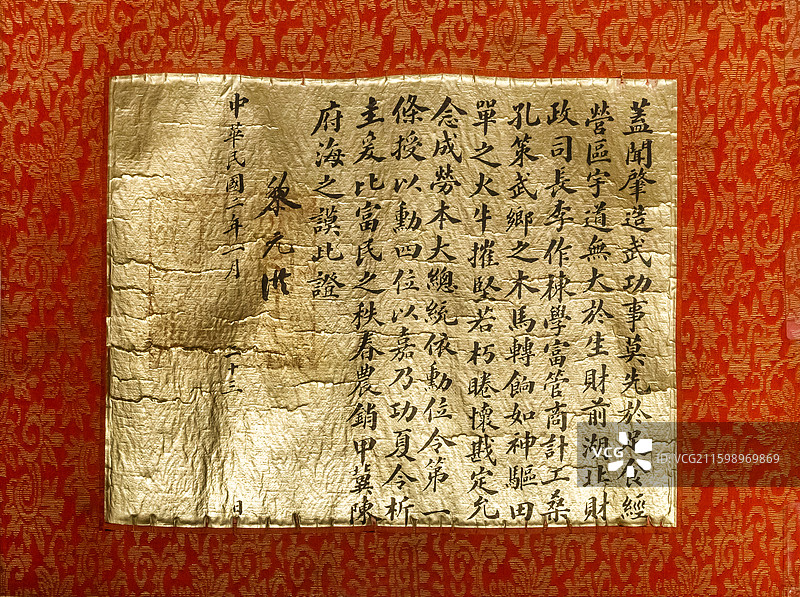 蓋聞肇造武功事莫先於足食經
營區宇道無大於生財前湖北財
政司長李作棟學富管商計工桑
孔策武鄉之木馬轉餉如神驅田
單之火牛摧堅若朽睠懷戡定允
念成勞本大總統依勳位令第一
條授以勳四位以嘉乃功夏令析
圭爰比富民之秩春農銷甲冀陳
府海之謨此證
黎元洪
中華民國二年一月 二十三 日
VCG
VCG211598969869